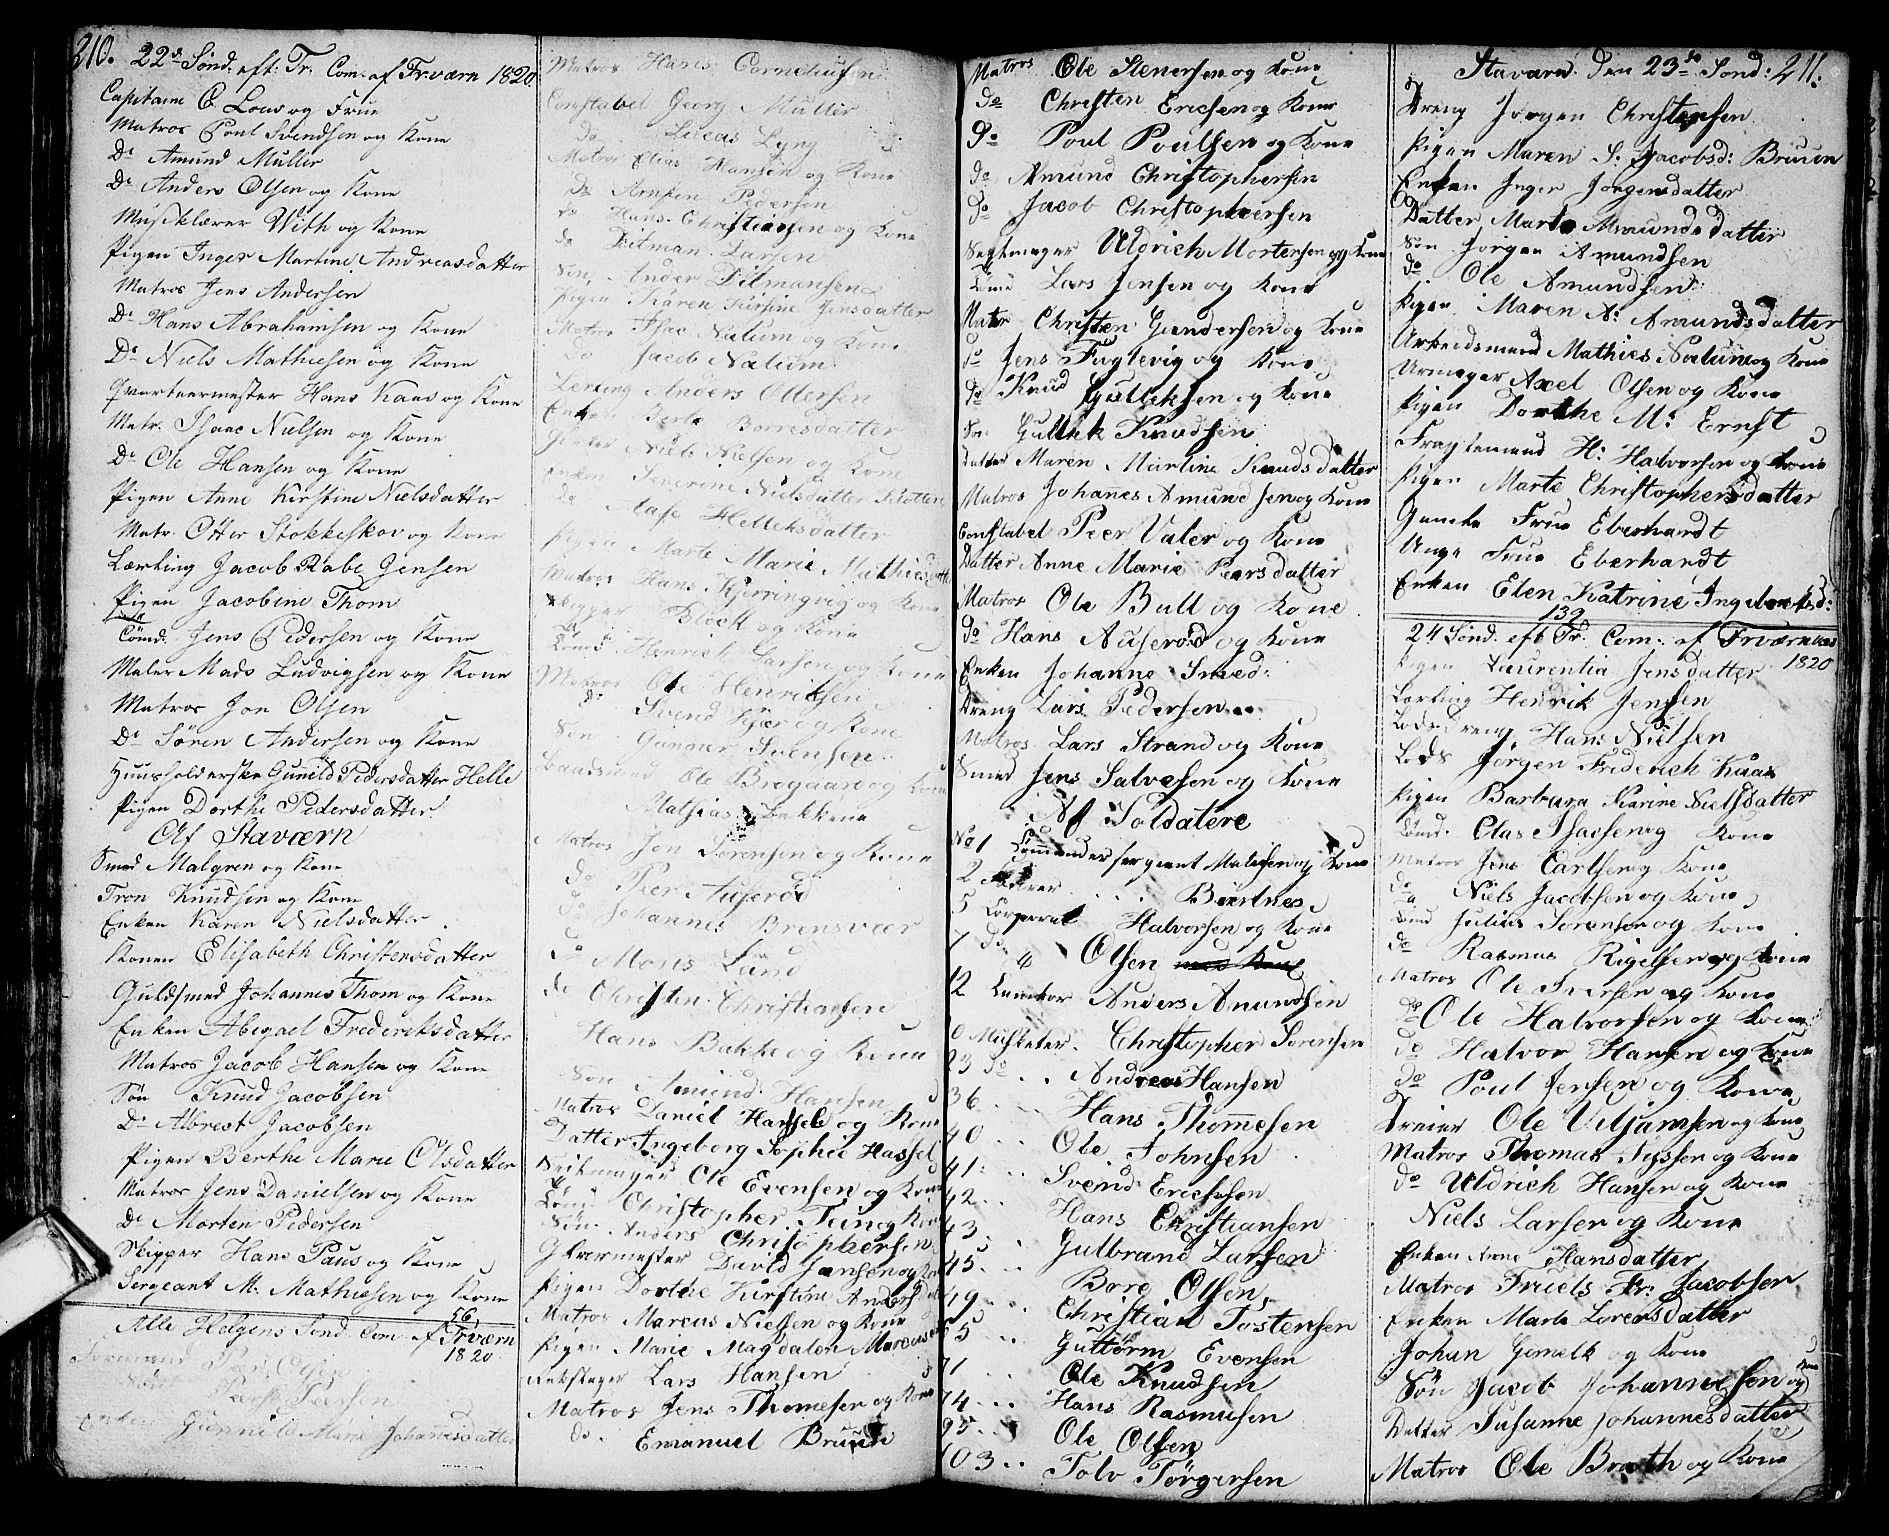 210. 22de Sønd: eft: Tr. Com: af Fr.værn 1820
Capitaine C Lous og Frue
Matros Poul Svendsen og Kone
Do Amund Muller
Do Anders Olsen og Kone
Musiklærer With og Kone
Pigen Inger Martine Andreasdatter
Matros Jens Andersen
Do Hans Abrahamsen og Kone
Do Niels Mathiesen og Kone
Qvarteermester Hans Kaas og Kone
Matr. Isaac Nielsen og Kone
Do Ole Hansen og Kone
Pigen Anne Kirstine Nielsdatter
Matr. Otter Stokkeskov og Kone
Lærling Jacob Rabe Jensen
Pigen Jacobine Thom
Tømd. Jens Pedersen og Kone
Maler Mads Ludvigsen og Kone
Matros Jon Olsen
Do Søren Andersen og Kone
Huusholderske Gunild Pedersdatter Helle
Pigen Dorthe Pedersdatter
Af Staværn
Smed Malgren og Kone
Tron Knudsen og Kone
Enken Karen Nielsdatter
Konen Elisabeth Christensdatter
Guldsmed Johannes Thom og Kone
Enken Abigael Frederiksdatter
Matros Jacob Hansen og Kone
Søn Knud Jacobsen
Do Albrect Jacobsen
Pigen Berthe Marie Olsdatter
Matros Jens Danielsen og Kone
Do Morten Pedersen
Skipper Hans Paus og Kone
Sergeant M. Mathiesen og Kone
56
Alle Helgens Sønd. Com: af Fr.værn
1820
Peer Olsen
Peersen
Enken Gunnild Marie Johannesdatter
Matros Hans Corneliusen
Constabel Georg Muller
do Lucas Lyng
Matros Elias Hansen og Kone
do Arnsen Pedersen
do Hans Christiansen og Kone
do Ditman Larsen
Søn Anders Ditmansen
Pigen Karen Kirstine Jensdatter
Matros Isac Nalum og Kone
do Jacob Nalum
Lærling Anders Ottersen
Enken Berte Borresdatter
Niels Nielsen og Kone
Enken Severine Nielsdatter
do Aase Helleksdatter
Pigen Marte Marie Mathiesdatter
Matros Hans Kjerringvig og Kone
Skipper Block og Kone
Tømd Henrich Larsen og Kone
Matros Ole Henriksen
do Svend Kjær og Kone
Søn Gunner Svensen
Baadsmand Ole Bregaard og Kone
Mathias Bakkene
Matros Jon Sørensen og Kone
do Peer Auserød
do Johannes Brensveer
do Mons Lund
do Christen Christiansen
Hans Bakke og Kone
Søn Amund Hansen
Matros Daniel Hassel og Kone
Datter Ingeborg Sophie Hassel
Seilmager Ole Evensen og Kone
Tømd Christopher Tein og Kone
Søn Anders Christophersen
David Jansen og Kone
Pigen Dorthe Kirstine Andersd
Matros Marcus Nielsen og Kone
Pigen Marie Magdalen Marcusd
Rebslager Lars Hansen
Matros Jens Thomesen og Kone
do. Emanuel Bruun
Matros Ole Stenersen og Kone
do Christen Ericsen og Kone
do Poul Poulsen og Kone
do Amund Christophersen
do Jacob Christophersen
Seglmager Uldrich Mortensen og Kone
Tømd Lars Jensen og Kone
Matr Christen Gundersen og Kone
do Jens Fuglevig og Kone
do Knud Gulleksen og Kone
Søn Gullek Knudsen
Datter Maren Martine Knudsdatter
Matros Johanes Amundsen og Kone
Constabel Peer Valer og Kone
Datter Anne Marie Peersdatter
Matros Ole Bull og Kone
do Hans Auserød og Kone
Enken Johanne Smed:
Dreng Lars Pedersen
Matros Lars Strand og Kone
Smed Jens Salvesen og Kone
Af Soldatere
No 1 Commandersergeant Madsen og Kone
2 Bærtnes
5 Corporal Halvorsen og Kone
7 do Olsen med Kone
12 Anders Amundsen
Musketer. Christopher Sørensen
23 do Andreas Hansen
36 Hans Thommesen
40 Ole Johnsen
41 Svend Ericksen
42 Hans Christiansen
43 Gulbrand Larsen
45 Bore Olsen
49 Christian Tostensen
55 Guttorm Evensen
71 Ole Knudsen
74 Hans Rasmusen
95 Ole Olsen
103 Tolv Torgersen
Staværn. Den 23de Sønd: 211.
Dreng Jørgen Christophsen
Pigen Maren S. Jacobsd: Bruun
Enken Inger Jørgensdatter
Datter Marte Amundsdatter
Søn Jørgen Amundsen
do Ole Amundsen
Pigen Maren A: Amundsdatter
Arbeidsmand Mathies Nalum og Kone
Urmager Axel Olsen og Kone
Pigen Dorthe M: Ernst
Fragtemand H: Halvorsen og Kone
Pigen Marte Christophersdatter
Gamle Frue Eberhardt
Unge Frue Eberhardt
Enken Elen Katrine Ingebretsd:
139
24 Sønd: eft Tr. Com: af Fr.værn
1820
Pigen Laurentia Jensdatter
Lærling Henrik Jensen
Lodsdreng Hans Nielsen
Lods Jørgen Friderich Kaas
Pigen Barbara Karine Nielsdatter
Tømd. Clas Isacsen og Kone
Matros Jens Carlsen og Kone
do Niels Jacobsen og Kone
Tømd Julius Sørensen og Kone
do Rasmus Rigelsen og Kone
Matros Ole Iversen og Kone
do Ole Halvorsen og Kone
do Halvor Hansen og Kone
do Poul Jensen og Kone
Dreier Ole Viljumsen og Kone
Matros Thomas Nissen og Kone
do Uldrich Hansen og Kone
Niels Larsen og Kone
Enken Anne Hansdatter
Matros Friels Fr: Jacobsen
Enken Marte Lorensdatter
Johan Gemelk og Kone
Søn Jacob Johannesen og Kone
Datter Susanne Johannesdatter
Matros Ole Brath og Kone